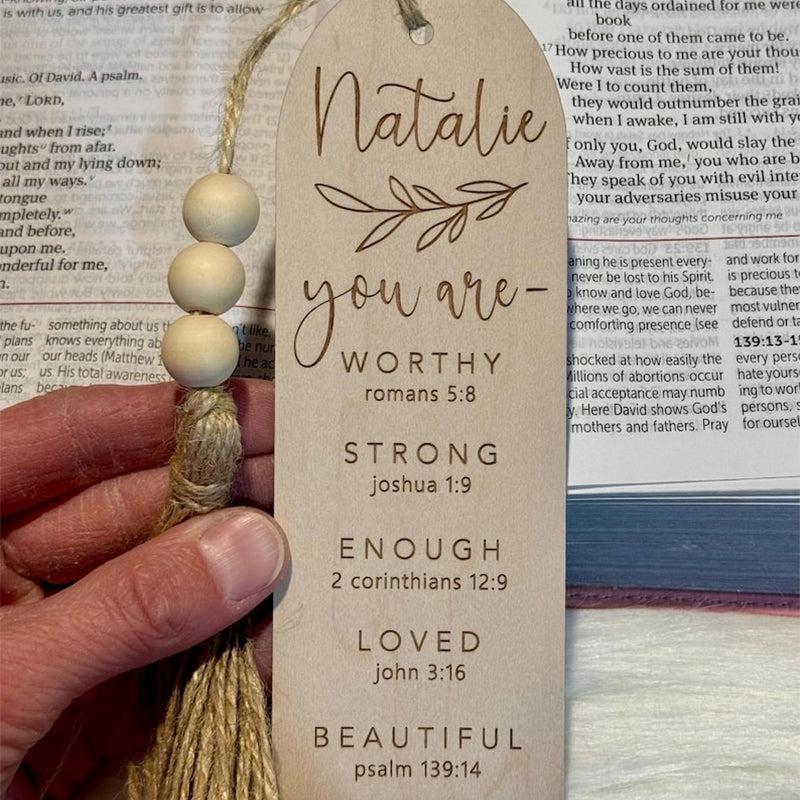 Natalie
you are-
WORTHY
romans 5:8
STRONG
joshua 1:9
ENOUGH
2 corinthians 12:9
LOVED
john 3:16
BEAUTIFUL
psalm 139:14
is with us, and his greatest gift is to allow
usic. Of David. A psalm.
LORD,
and when I rise;
from afar.
out and my lying down;
all my ways.
tongue
and before,
upon me.
for me,
the fu- something about us
plans knows everything
our our heads (Matthew
us. His total awareness
all the days ordained for me were
book
before one of them came to be.
17 How precious to me are your
How vast is the sum of them!
Were I to count them,
they would outnumber the
when I awake, I am still with
only you, God, would slay the
Away from me, you who are
They speak of you with evil
your adversaries misuse your
are your thoughts concerning me
he is present every-
never be lost to his Spirit.
know and love God, be-
where we go, we can never
comforting presence (see
shocked at how easily the
Millions of abortions occur
acceptance may numb
Here David shows God's
mothers and fathers. Pray
and work for
is precious
because
most
defend or
139:13-
every
hate
ing to
persons,
for